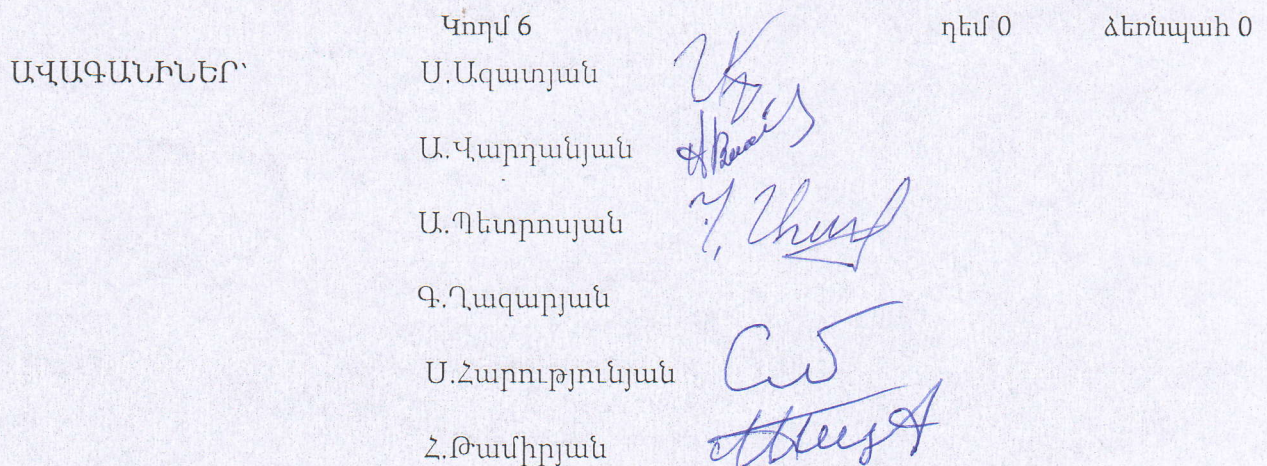 Կողմ 6 դեմ 0 ձեռնպահ 0
ԱՎԱԳԱՆԻՆԵՐ՝ Ս.Ազատյան
Ա.Վարդանյան
Ա.Պետրոսյան
Գ.Ղազարյան
Ս.Հարությունյան
Հ.Թամիրյան